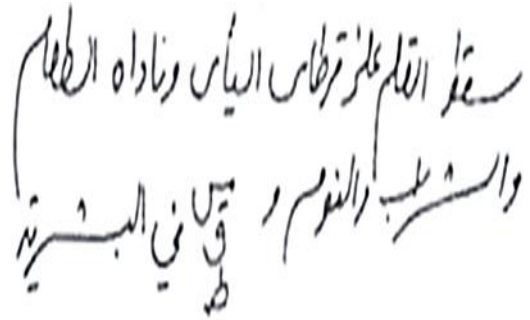 سقط القلم على قرطاس اليأس وناداه الطعام
والشراب والنوم و طقس في البشرية